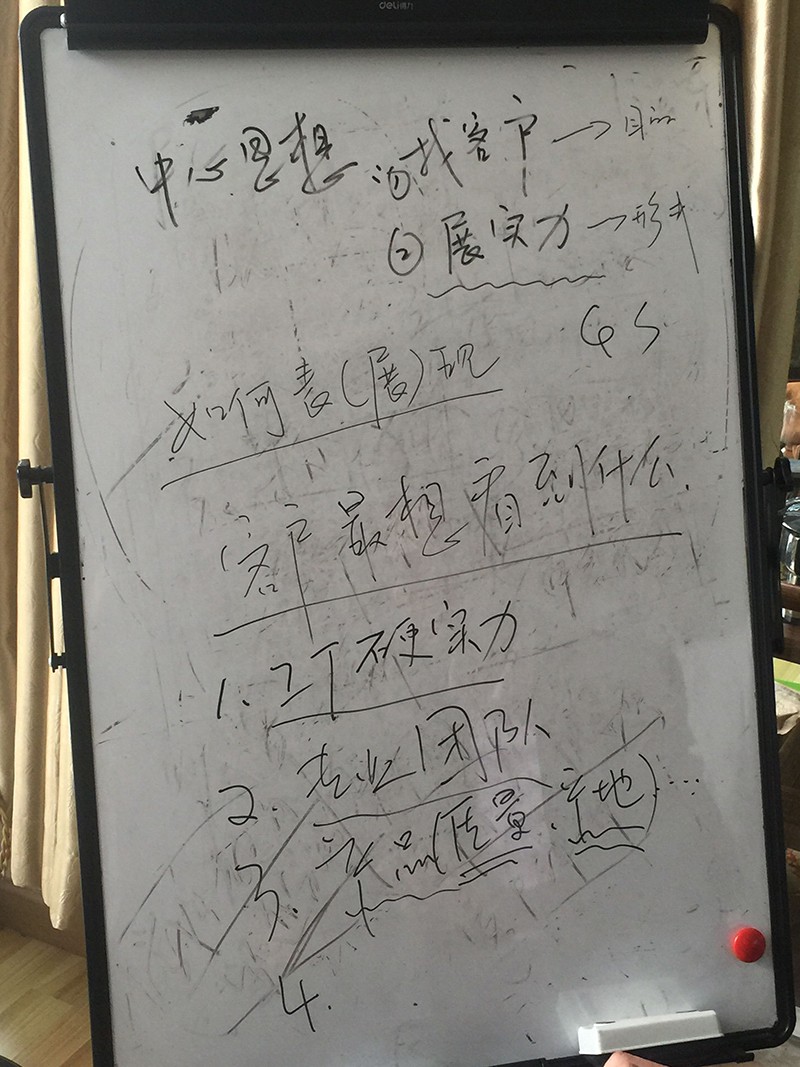 deli得力
中心思想 ① 找客户 → 目的
② 展实力 → 形式
如何表(展)现
客户最想看到什么.
1. 工厂硬实力
2. 专业团队
3. 产品(质量.产地)...
4.